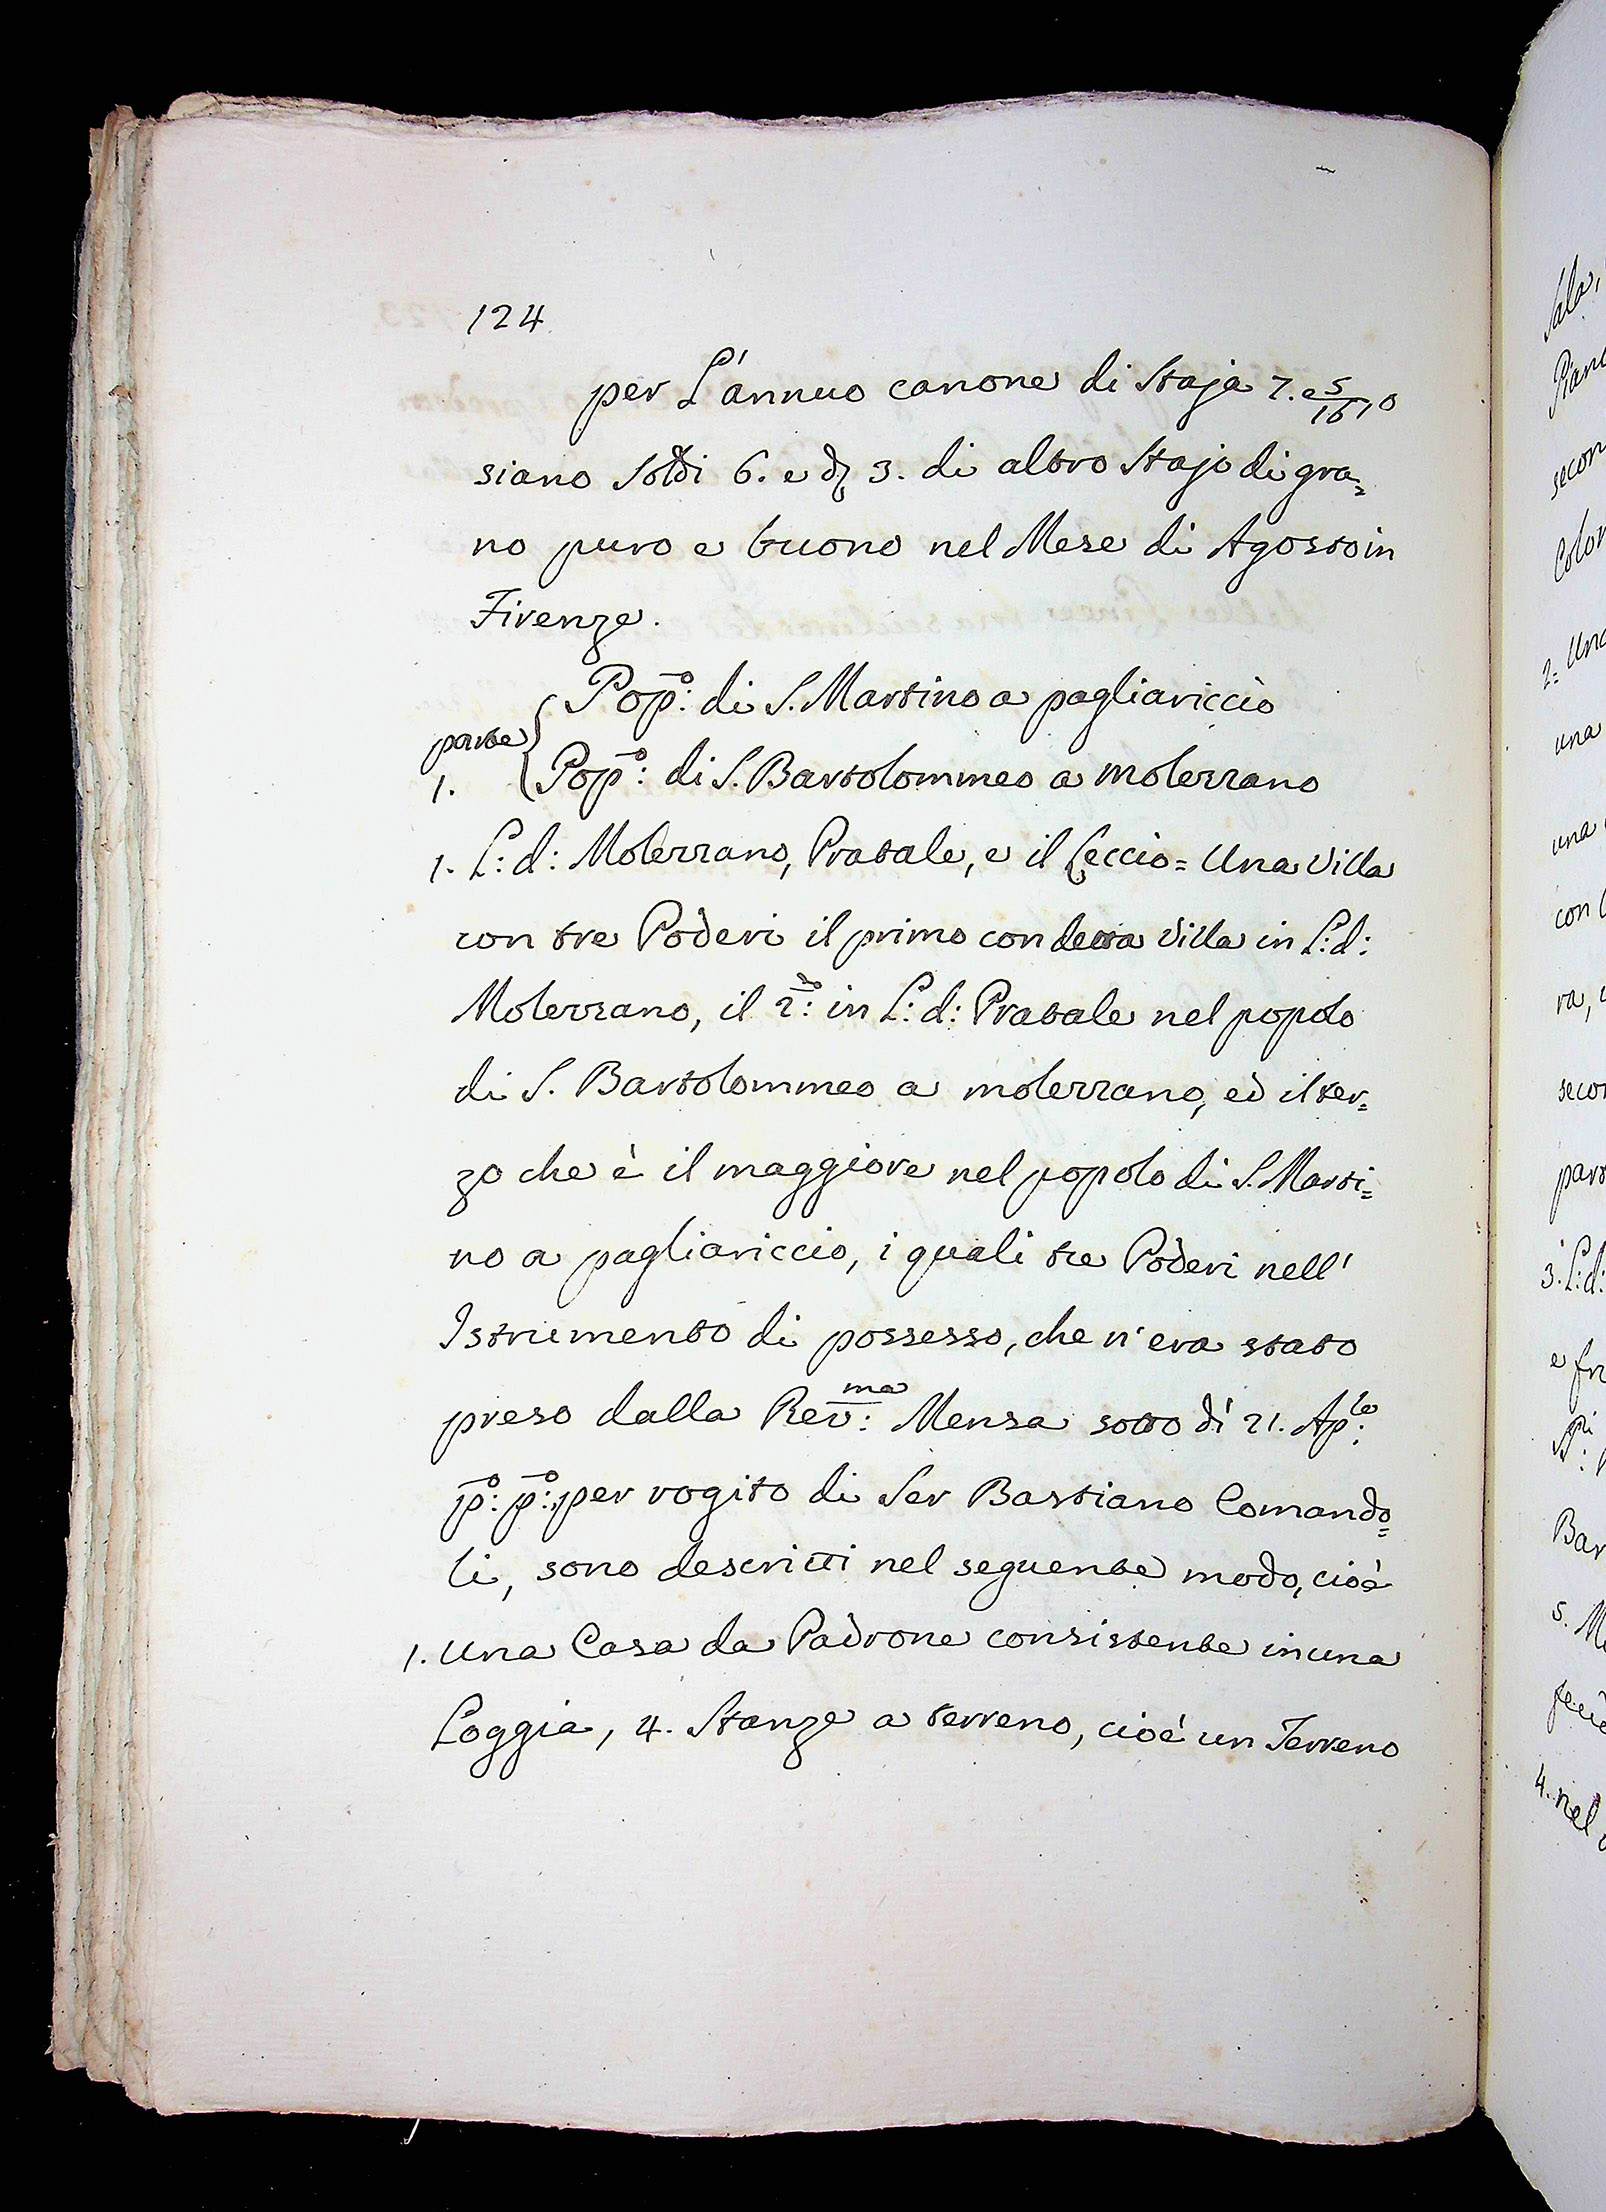 124
per L'annuo canone di Staja 7. e 5/16 o
siano Soldi 6. e d 3. di altro Stajo di gra=
no puro e buono nel Mese di Agosto in
Firenze.
Pop:o di S. Martino a pagliariccio
parte
1. Pop:o di S. Bartolommeo a molezzano
1. L: d: Molezzano, Pratale, e il Leccio = Una Villa
con tre Poderi il primo con detta Villa in L: d:
Molezzano, il 2:do in L: d: Pratale nel popolo
di S. Bartolommeo a molezzano, ed il ter=
zo che è il maggiore nel popolo di S. Marti=
no a pagliariccio, i quali tre Poderi nell'
Istrumento di possesso, che n'era stato
preso dalla Rev:ma Mensa sotto dì 21. Ap:le
p:o p:o per rogito di Ser Bastiano Comando=
li, sono descritti nel seguente modo, cioè
1. Una Casa da Padrone consistente in una
Loggia, 4. Stanze a terreno, cioè un Terreno
Sala,
secon
2= Una
una
una
con
ra,
secon
part
3. L: d:
e
Bar
5.
4. nel